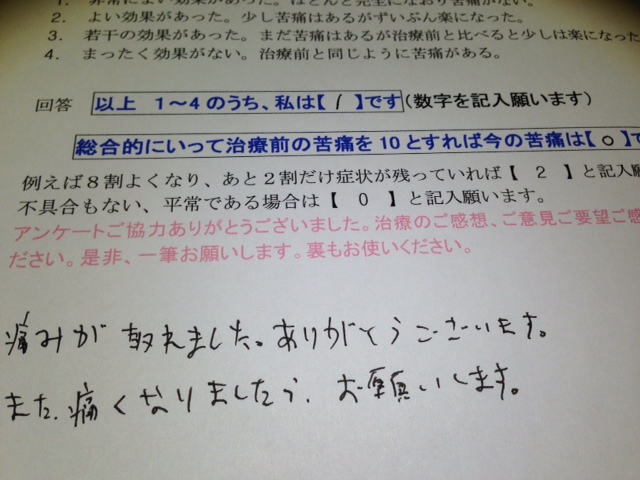 1. 非常によい効果があった。ほとんど完全になおり苦痛がない。
2. よい効果があった。少し苦痛はあるがずいぶん楽になった。
3. 若干の効果があった。まだ苦痛はあるが治療前と比べると少しは楽になった
4. まったく効果がない。治療前と同じように苦痛がある。
回答 以上 1～4のうち、私は【 1 】です(数字を記入願います)
総合的にいって治療前の苦痛を10とすれば今の苦痛は【 0 】で
例えば8割よくなり、あと2割だけ症状が残っていれば【 2 】と記入
不具合もない、平常である場合は【 0 】と記入願います。
アンケートご協力ありがとうございました。治療のご感想、ご意見ご要望ご感
ださい。是非、一筆お願いします。裏もお使いください。
痛みが取れました。ありがとうございます。
また、痛くなりましたら、お願いします。